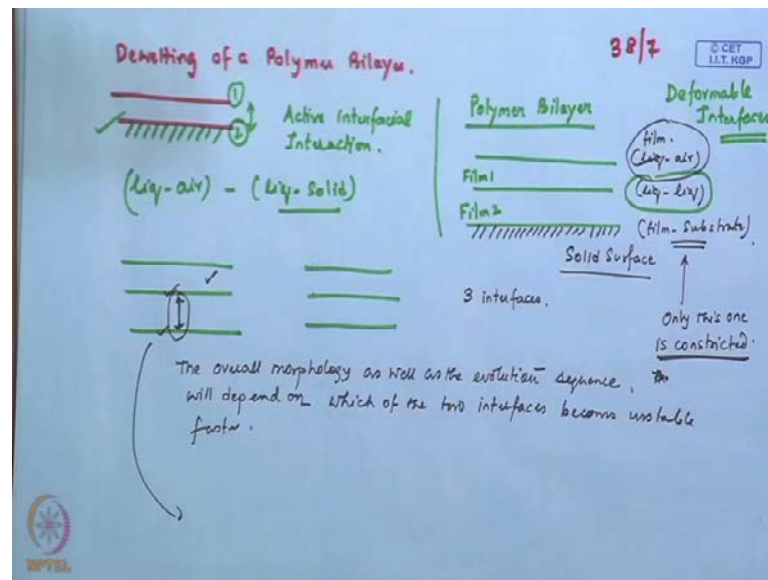 Dewetting of a Polymer Bilayer.
38/7
© CET
I.I.T. KGP
1
2
Active Interfacial
Interaction.
(liq-air) - (liq-solid)
Polymer Bilayer
Deformable
Interfaces
film.
(liq-air)
Film1
(liq-liq)
Film2
(film-substrate).
Solid Surface
3 interfaces.
Only this one
is constricted.
The overall morphology as well as the evolution sequence.
will depend on which of the two interfaces become unstable
faster.
NPTEL